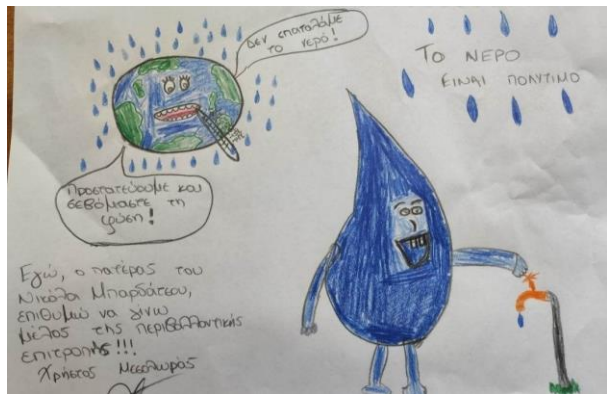 Δεν σπαταλάμε
το νερό!
ΤΟ ΝΕΡΟ
ΕΙΝΑΙ ΠΟΛΥΤΙΜΟ
Προστατεύουμε και
σεβόμαστε τη
φύση!
Εγώ, ο πατέρας του
Νικόλα Μπαρδάτσου,
επιθυμώ να γίνω
μέλος της περιβαλλοντικής
επιτροπής!!!
Χρήστος